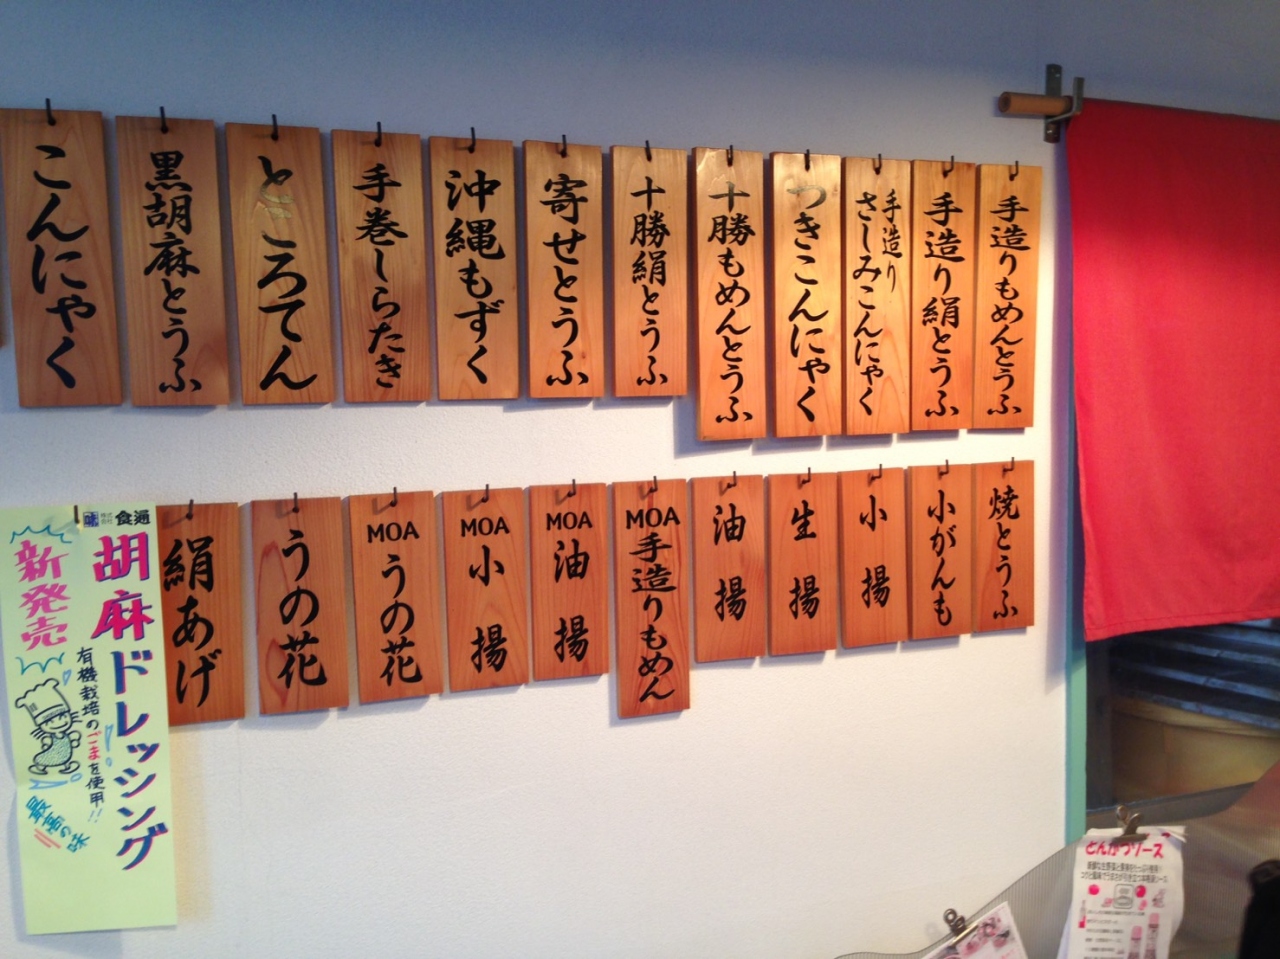 手造りもめんとうふ
手造り絹とうふ
手造り
さしみこんにゃく
つきこんにゃく
十勝もめんとうふ
十勝絹とうふ
寄せとうふ
沖縄もずく
手巻しらたき
ところてん
黒胡麻とうふ
こんにゃく
焼とうふ
小がんも
小揚
生揚
油揚
MOA手造りもめん
MOA油揚
MOA小揚
MOAうの花
うの花
絹あげ
株式会社 食通
胡麻ドレッシング
有機栽培のごまを使用!!
新発売
最高の味
とんかつソース